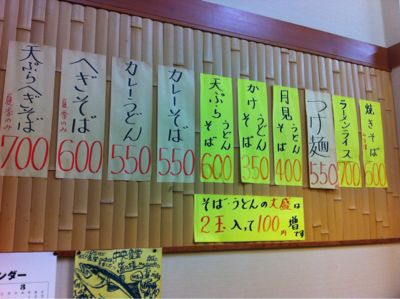 天ぷらへぎそば
夏季のみ
700
へぎそば
夏季のみ
600
カレーうどん
550
カレーそば
550
天ぷら
うどん
そば
600
かけ
うどん
そば
350
月見
うどん
そば
400
つけ麺
550
ラーメンライス
700
焼きそば
500
そば・うどんの大盛は
2玉入って100円増です
中央食堂
ンダー